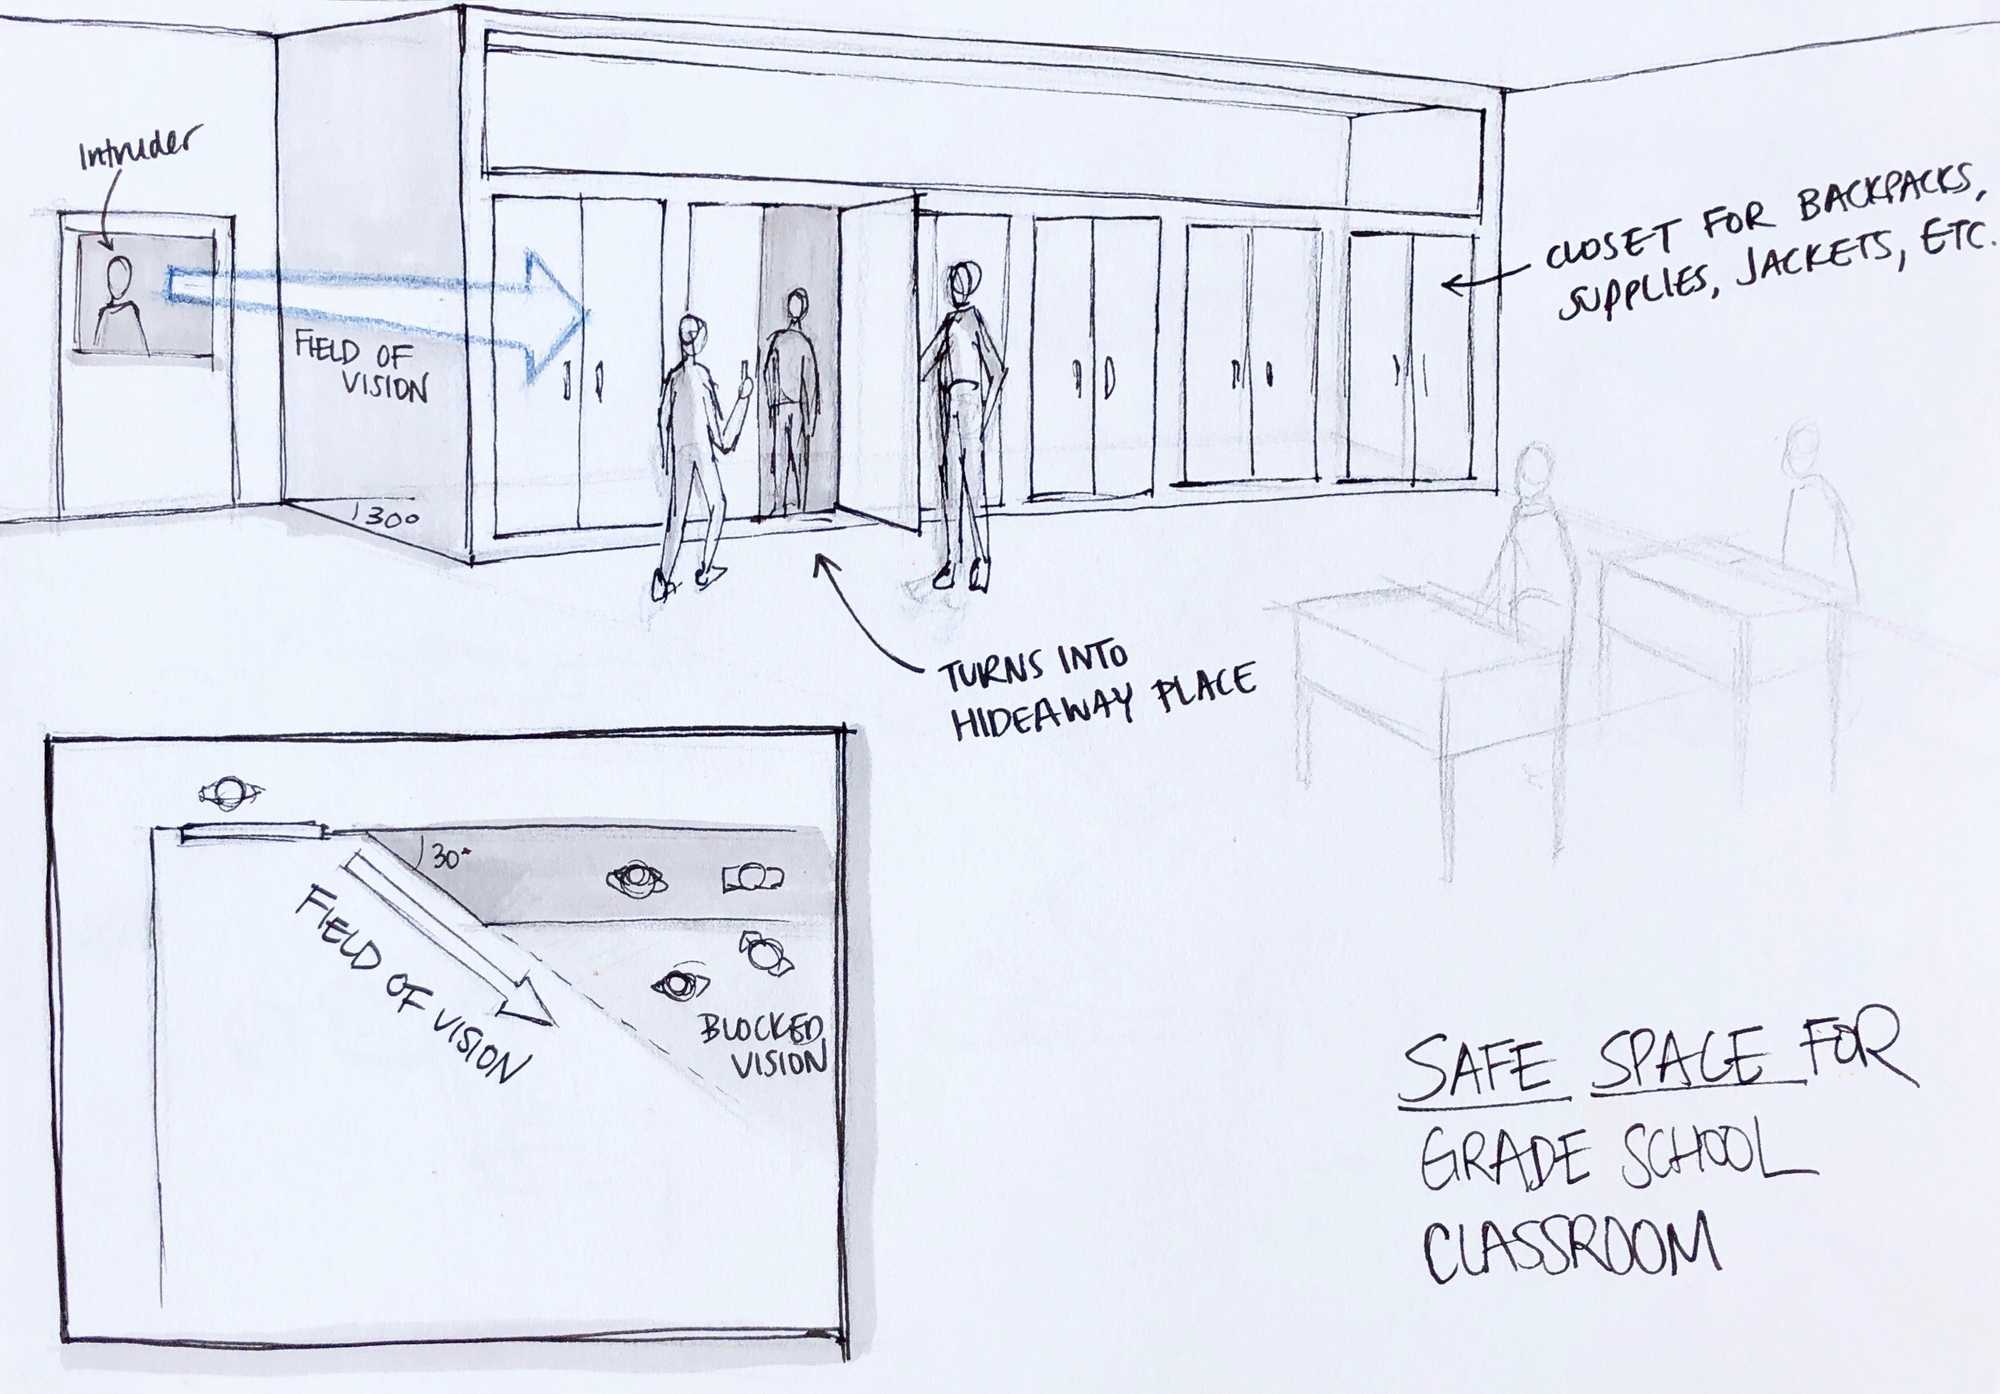 Intruder
FIELD OF
VISION
30°
CLOSET FOR BACKPACKS,
SUPPLIES, JACKETS, ETC.
TURNS INTO
HIDEAWAY PLACE
30°
FIELD OF VISION
BLOCKED
VISION
SAFE SPACE FOR
GRADE SCHOOL
CLASSROOM